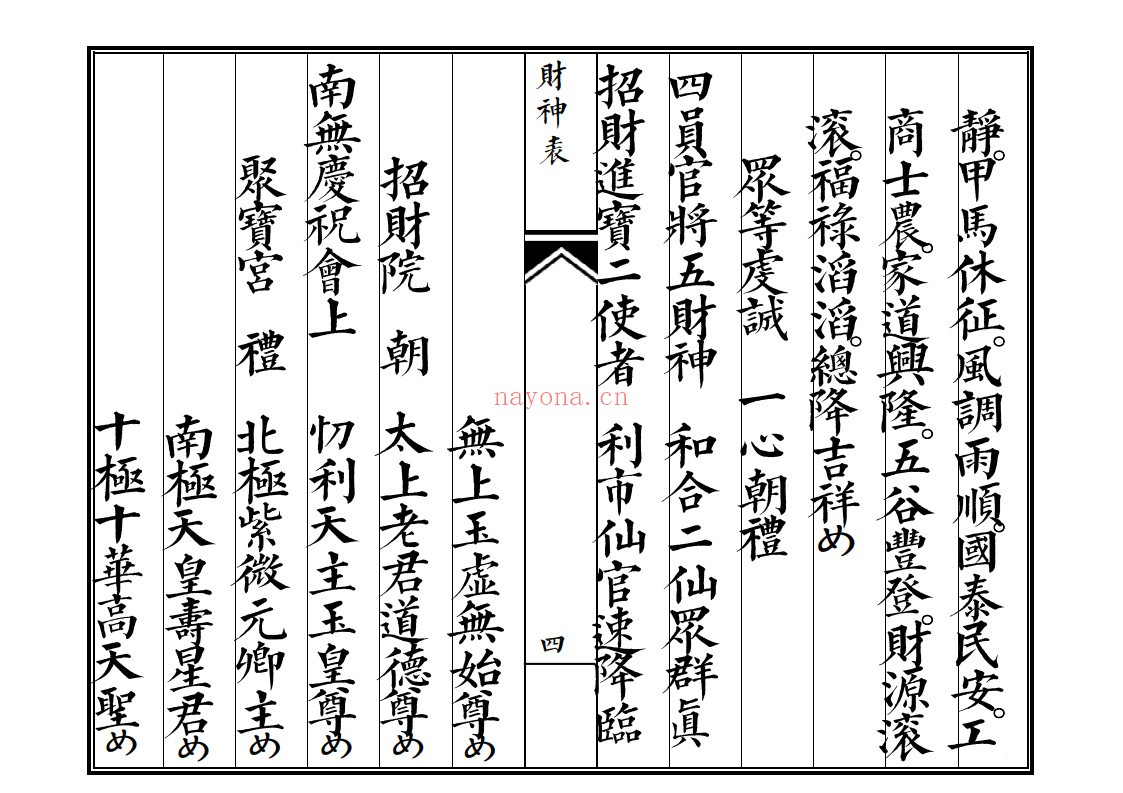 靜。甲馬休征。風調雨順。國泰民安。工
商士農。家道興隆。五谷豐登。財源滚
滚。福祿滔滔。總降吉祥め
眾等虔誠　一心朝禮
四員官將五財神　和合二仙眾群眞
招財進寶二使者　利市仙官速降臨
財神表
四
無上玉虛無始尊め
招財院　朝　太上老君道德尊め
南無慶祝會上　忉利天主玉皇尊め
聚寶宮　禮　北極紫微元卿主め
南極天皇壽星君め
十極十華高天聖め
nayona.cn